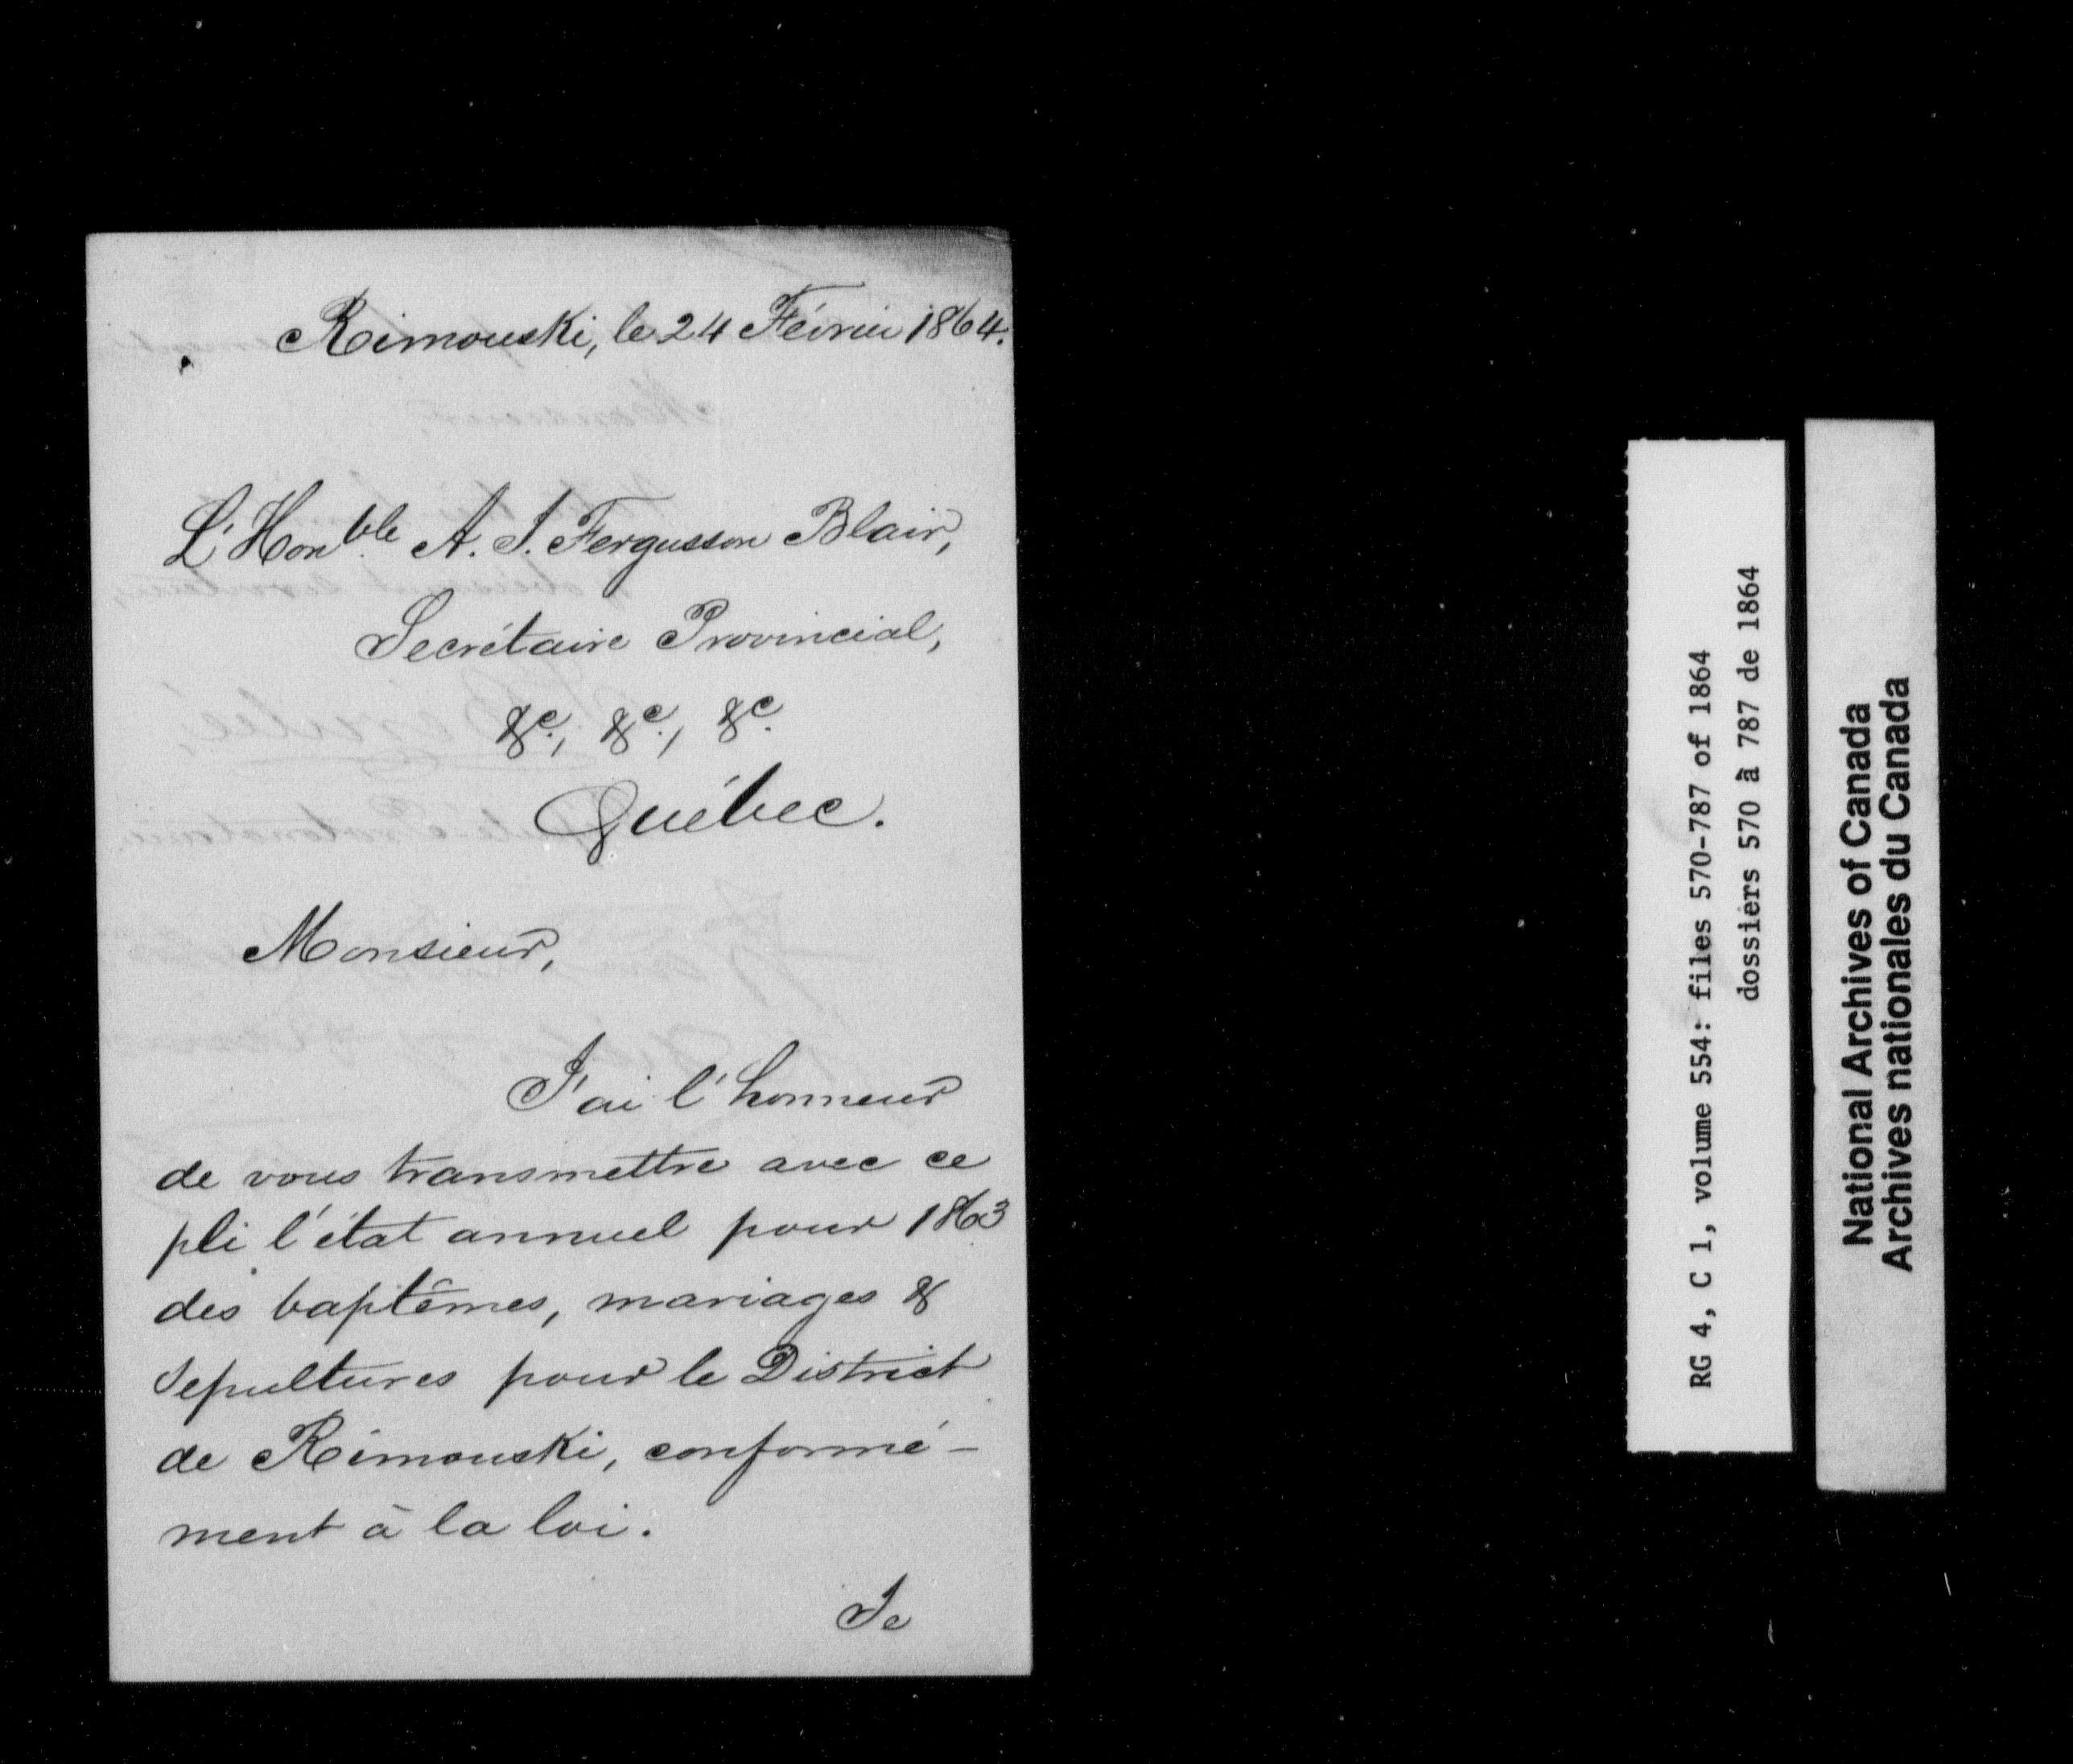 Rimouski, le 24 Février 1864.
L'Honble A. J. Fergusson Blair,
Secrétaire Provincial,
&c., &c., &c.
Québec.
Monsieur,
J'ai l'honneur
de vous transmettre avec ce
pli l'état annuel pour 1863
des baptêmes, mariages &
Sepultures pour le District
de Rimouski, conformé-
ment à la loi.
Je
RG 4, C 1, volume 554: files 570-787 of 1864
dossiers 570 à 787 de 1864
National Archives of Canada
Archives nationales du Canada